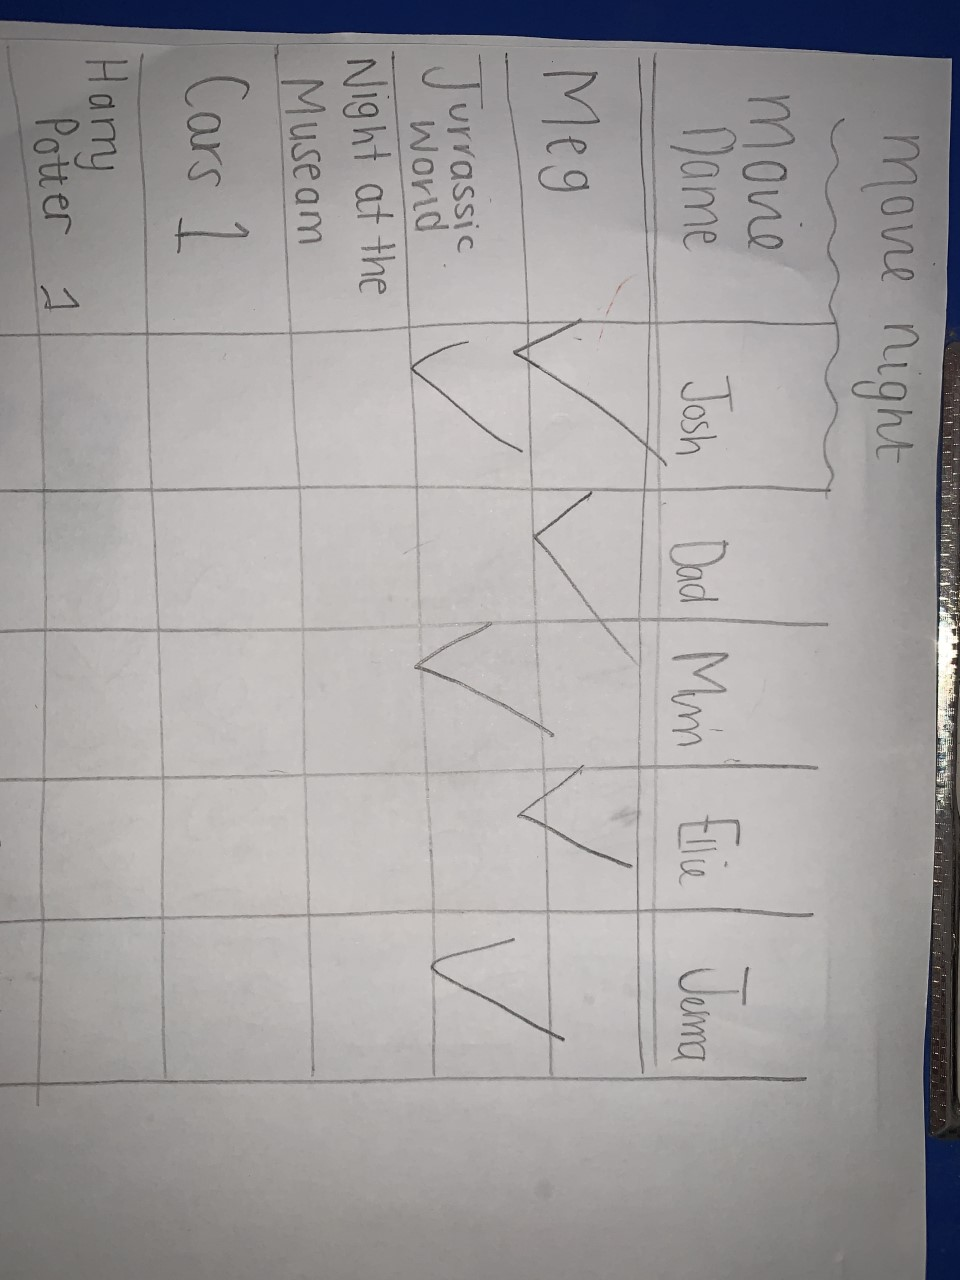 movie night
Movie
Name
Josh
Dad
Mum
Ellie
Jenna
Meg
Jurrassic
World
Night at the
Museam
Cars 1
Harry
Potter 1